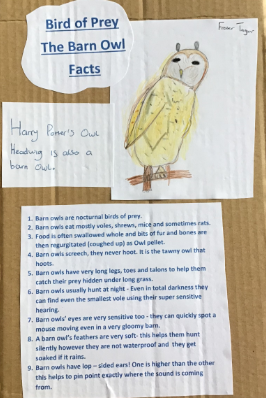 Bird of Prey
The Barn Owl
Facts
Harry Potter's Owl
Headwig is also a
bare owl.
1. Barn owls are nocturnal birds of prey.
2. Barn owls eat mostly voles, shrews, mice and sometimes rats.
3. Food is often swallowed whole and bits of fur and bones are
then regurgitated (coughed up) as Owl pellet.
4. Barn owls screech, they never hoot. It is the tawny owl that
hoots.
5. Barn owls have very long legs, toes and talons to help them
catch their prey hidden under long grass.
6. Barn owls usually hunt at night - Even in total darkness they
can find even the smallest vole using their super sensitive
hearing.
7. Barn owls' eyes are very sensitive too - they can quickly spot a
mouse moving even in a very gloomy barn.
8. A barn owl's feathers are very soft- this helps them hunt
silently however they are not waterproof and they get
soaked if it rains.
9. Barn owls have lop – sided ears! One is higher than the other
this helps to pin point exactly where the sound is coming
from.